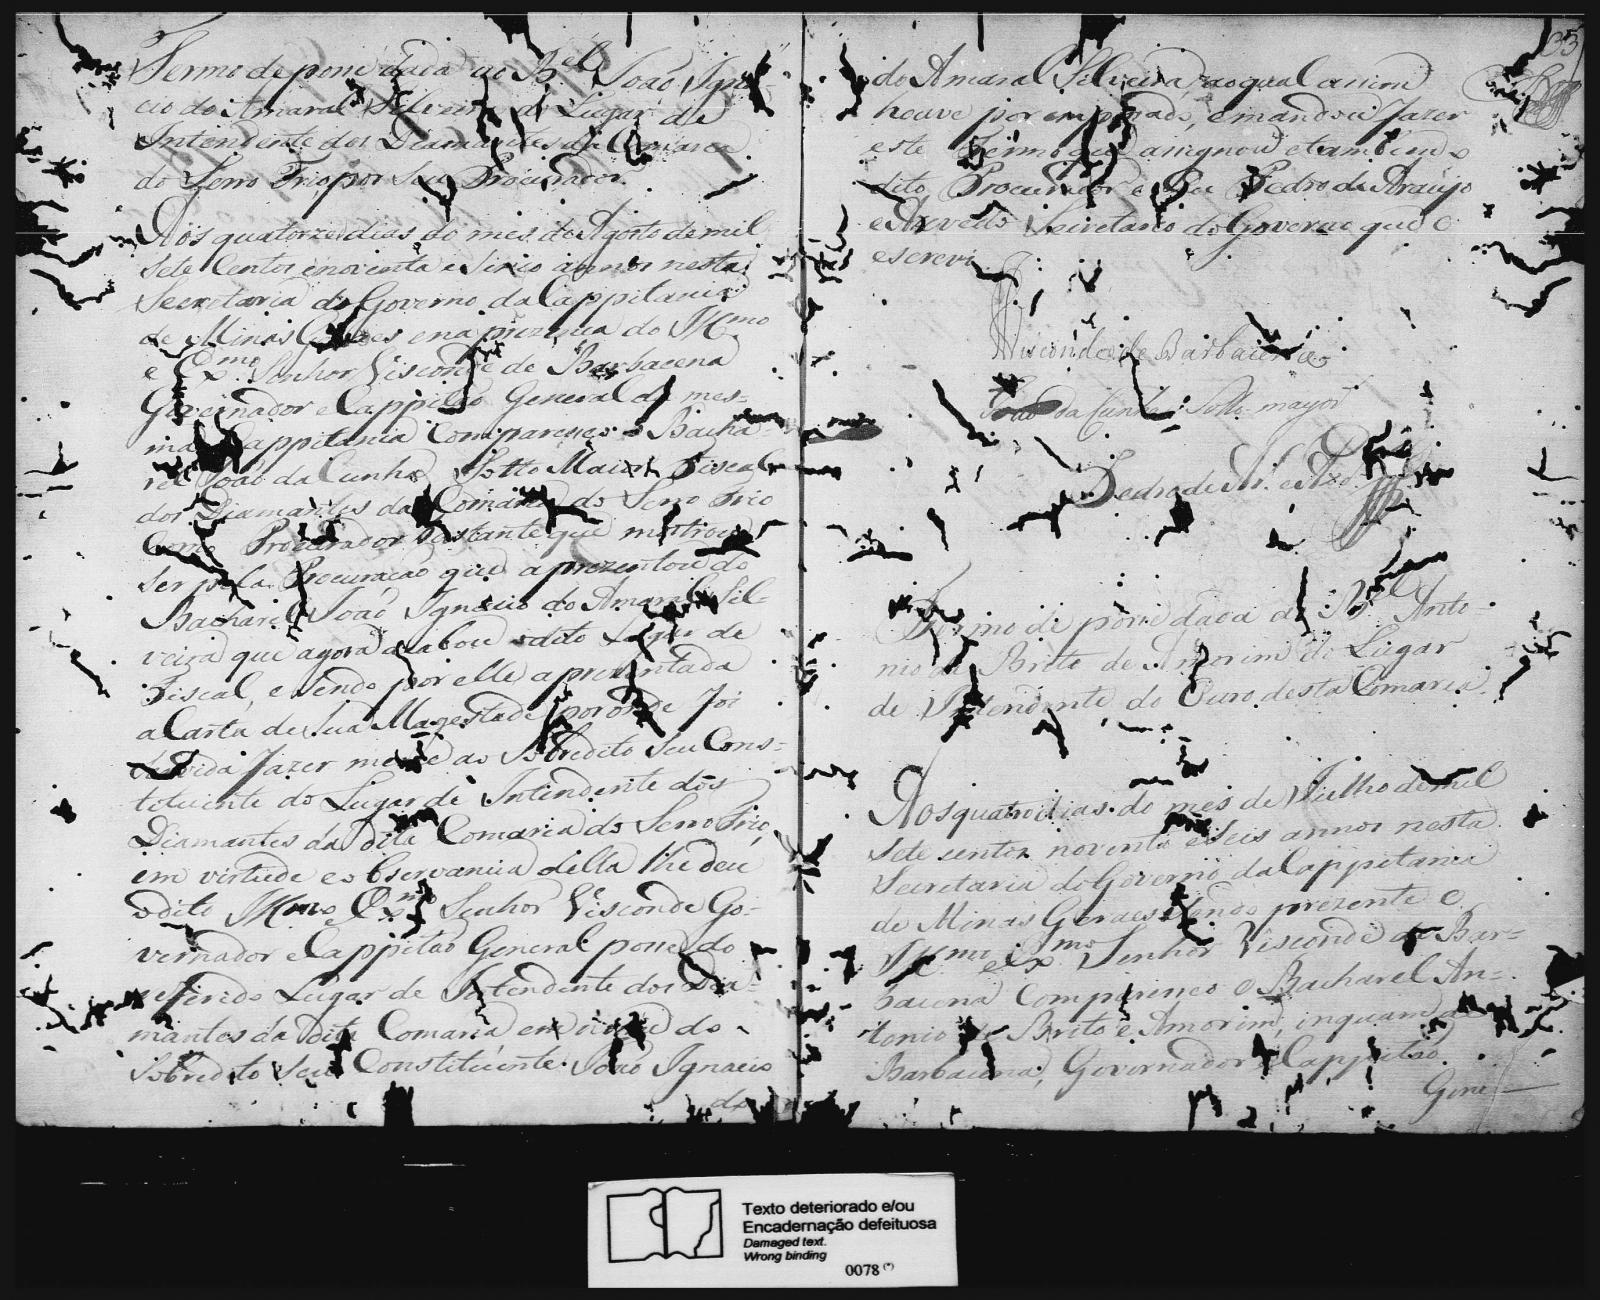 Termo de posse dada ao B.el João Igna
cio do Amaral Silveira do Lugar de
Intendente dos Diamantes da Comarca
do Serro Frio por seu Procurador.
Aos quatorze dias do mes de Agosto de mil
sete Centos e noventa e sinco annos nesta
Secretaria do Governo da Cappitania
de Minas Geraes e na prezença do Ill.mo
e Ex.mo Senhor Visconde de Barbacena
Governador e Cappitão General da mes-
ma Cappitania Compareceo o Bacha-
rel João da Cunha Sotto Maior Fiscal
dos Diamantes da Comarca do Serro Frio
como Procurador bastante que mostrou
ser pela Procuração que aprezentou do
Bacharel João Ignacio do Amaral Sil-
veira que agora acabou o dito Lugar de
Fiscal, e sendo por elle aprezentada
a Carta de Sua Magestade por onde foi
servida fazer merce ao Sobredito seu Cons-
tetuente do Lugar de Intendente dos
Diamantes da dita Comarca do Serro Frio,
em virtude e observancia della lhe deu
o dito Ill.mo e Ex.mo Senhor Visconde Go-
vernador e Cappitão General posse do
referido Lugar de Intendente dos Dia-
mantes da dita Comarca em do
Sobredito seu Constituente João Ignacio
do
do Amaral Silveira ao qual assim
houve por empossado, e mandou fazer
este Termo que assignou e tambem o
dito Procurador e Eu Pedro de Araujo
e Azevedo Secretario do Governo que o
escrevi
Visconde de Barbacena
João da Cunha Sotto mayor
Pedro de Ar.o e Azd.o
Termo de posse dada ao B.el Anto-
nio de Brito de Amorim do Lugar
de Intendente do Ouro desta Comarca.
Aos quatro dias do mes de Julho de mil
sete centos noventa e seis annos nesta
Secretaria do Governo da Cappitania
de Minas Geraes sendo prezente o
Ill.mo e Ex.mo Senhor Visconde de Bar-
bacena Compareceo o Bacharel An-
tonio de Brito e Amorim, inquam de
Barbacena, Governador e Cappitão
Gene
Texto deteriorado e/ou
Encadernação defeituosa
Damaged text.
Wrong binding
0078 (*)